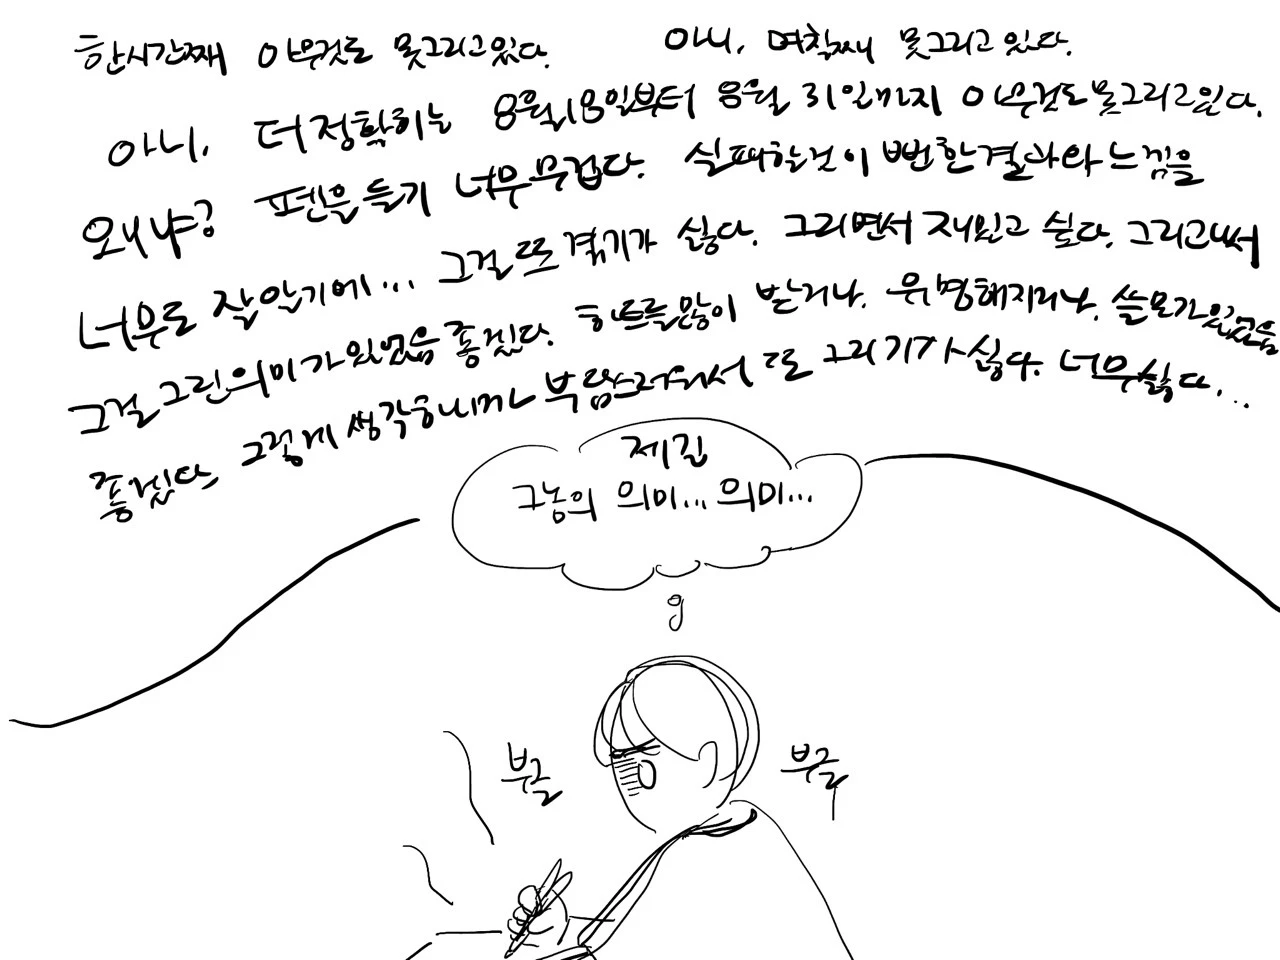 한시간째 아무것도 못그리고있다. 아니, 며칠째 못그리고 있다.
아니, 더정확히는 8월18일부터 8월 31일까지 아무것도못그리고있다.
왜냐? 펜을 들기 너무무겁다. 실패할것이 뻔한결과와 느낌을
너무도 잘알기에... 그걸 또 겪기가 싫다. 그리면서 재밌고 싶다. 그리고나서
그걸 그린의미가있었음 좋겠다. 하트를많이 받거나. 유명해지거나. 쓸모가있었음
좋겠다 그렇게 생각하니까 부담스러워서 또 그리기가싫다. 너무싫다...
제길
그놈의 의미... 의미...
부글
부글